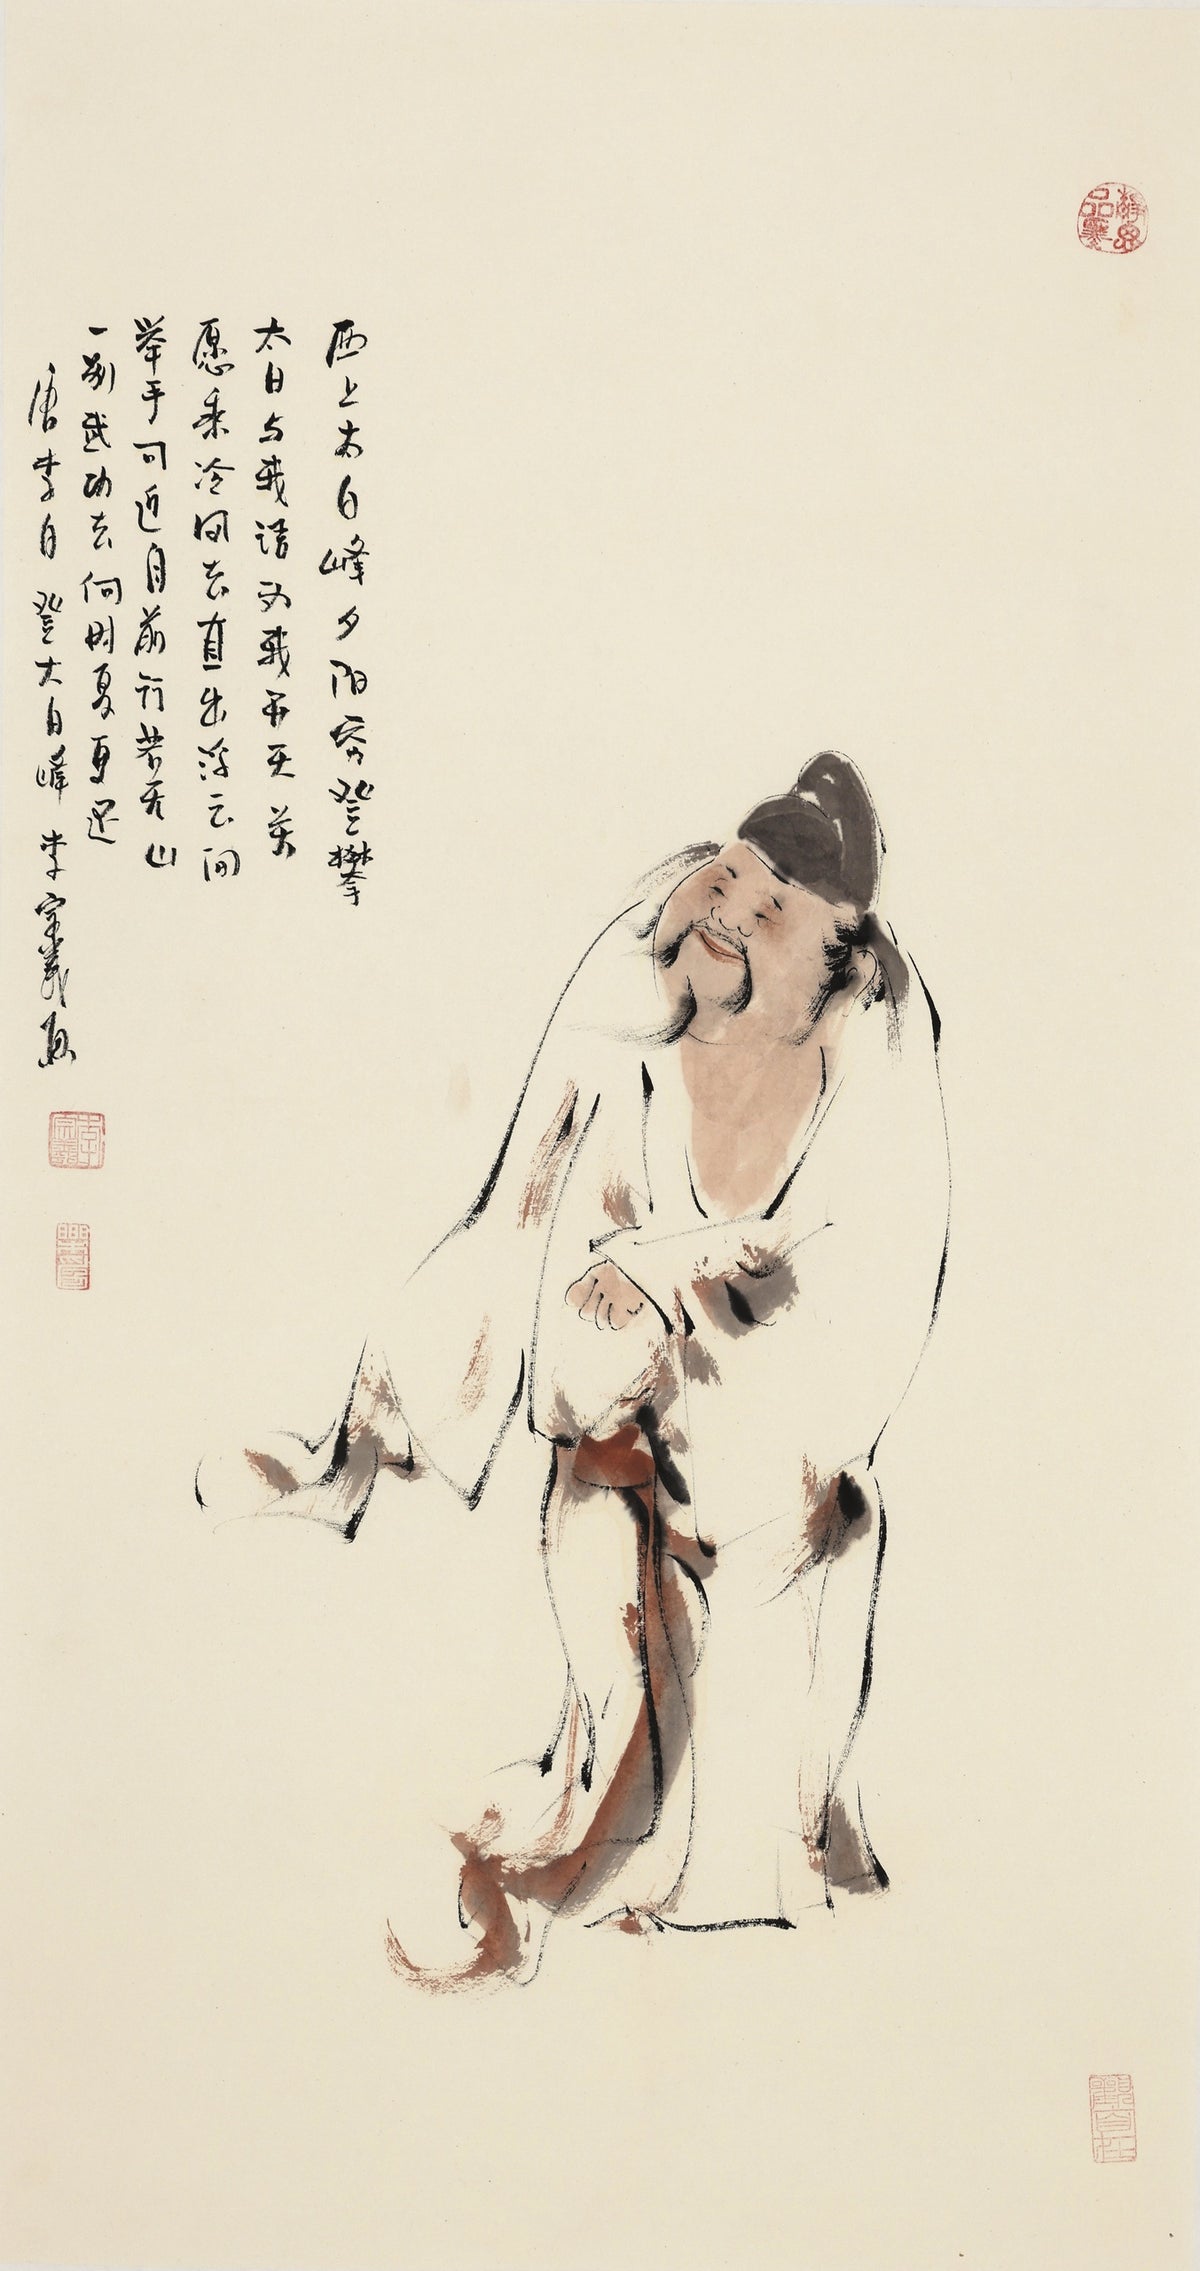 西上太白峰夕阳穷登攀
太白与我语为我开天关
愿乘冷风去直出浮云间
举手可近月前行若无山
一别武功去何时复更还
唐李白登太白峰 李宗義画
李宗義
觀自在